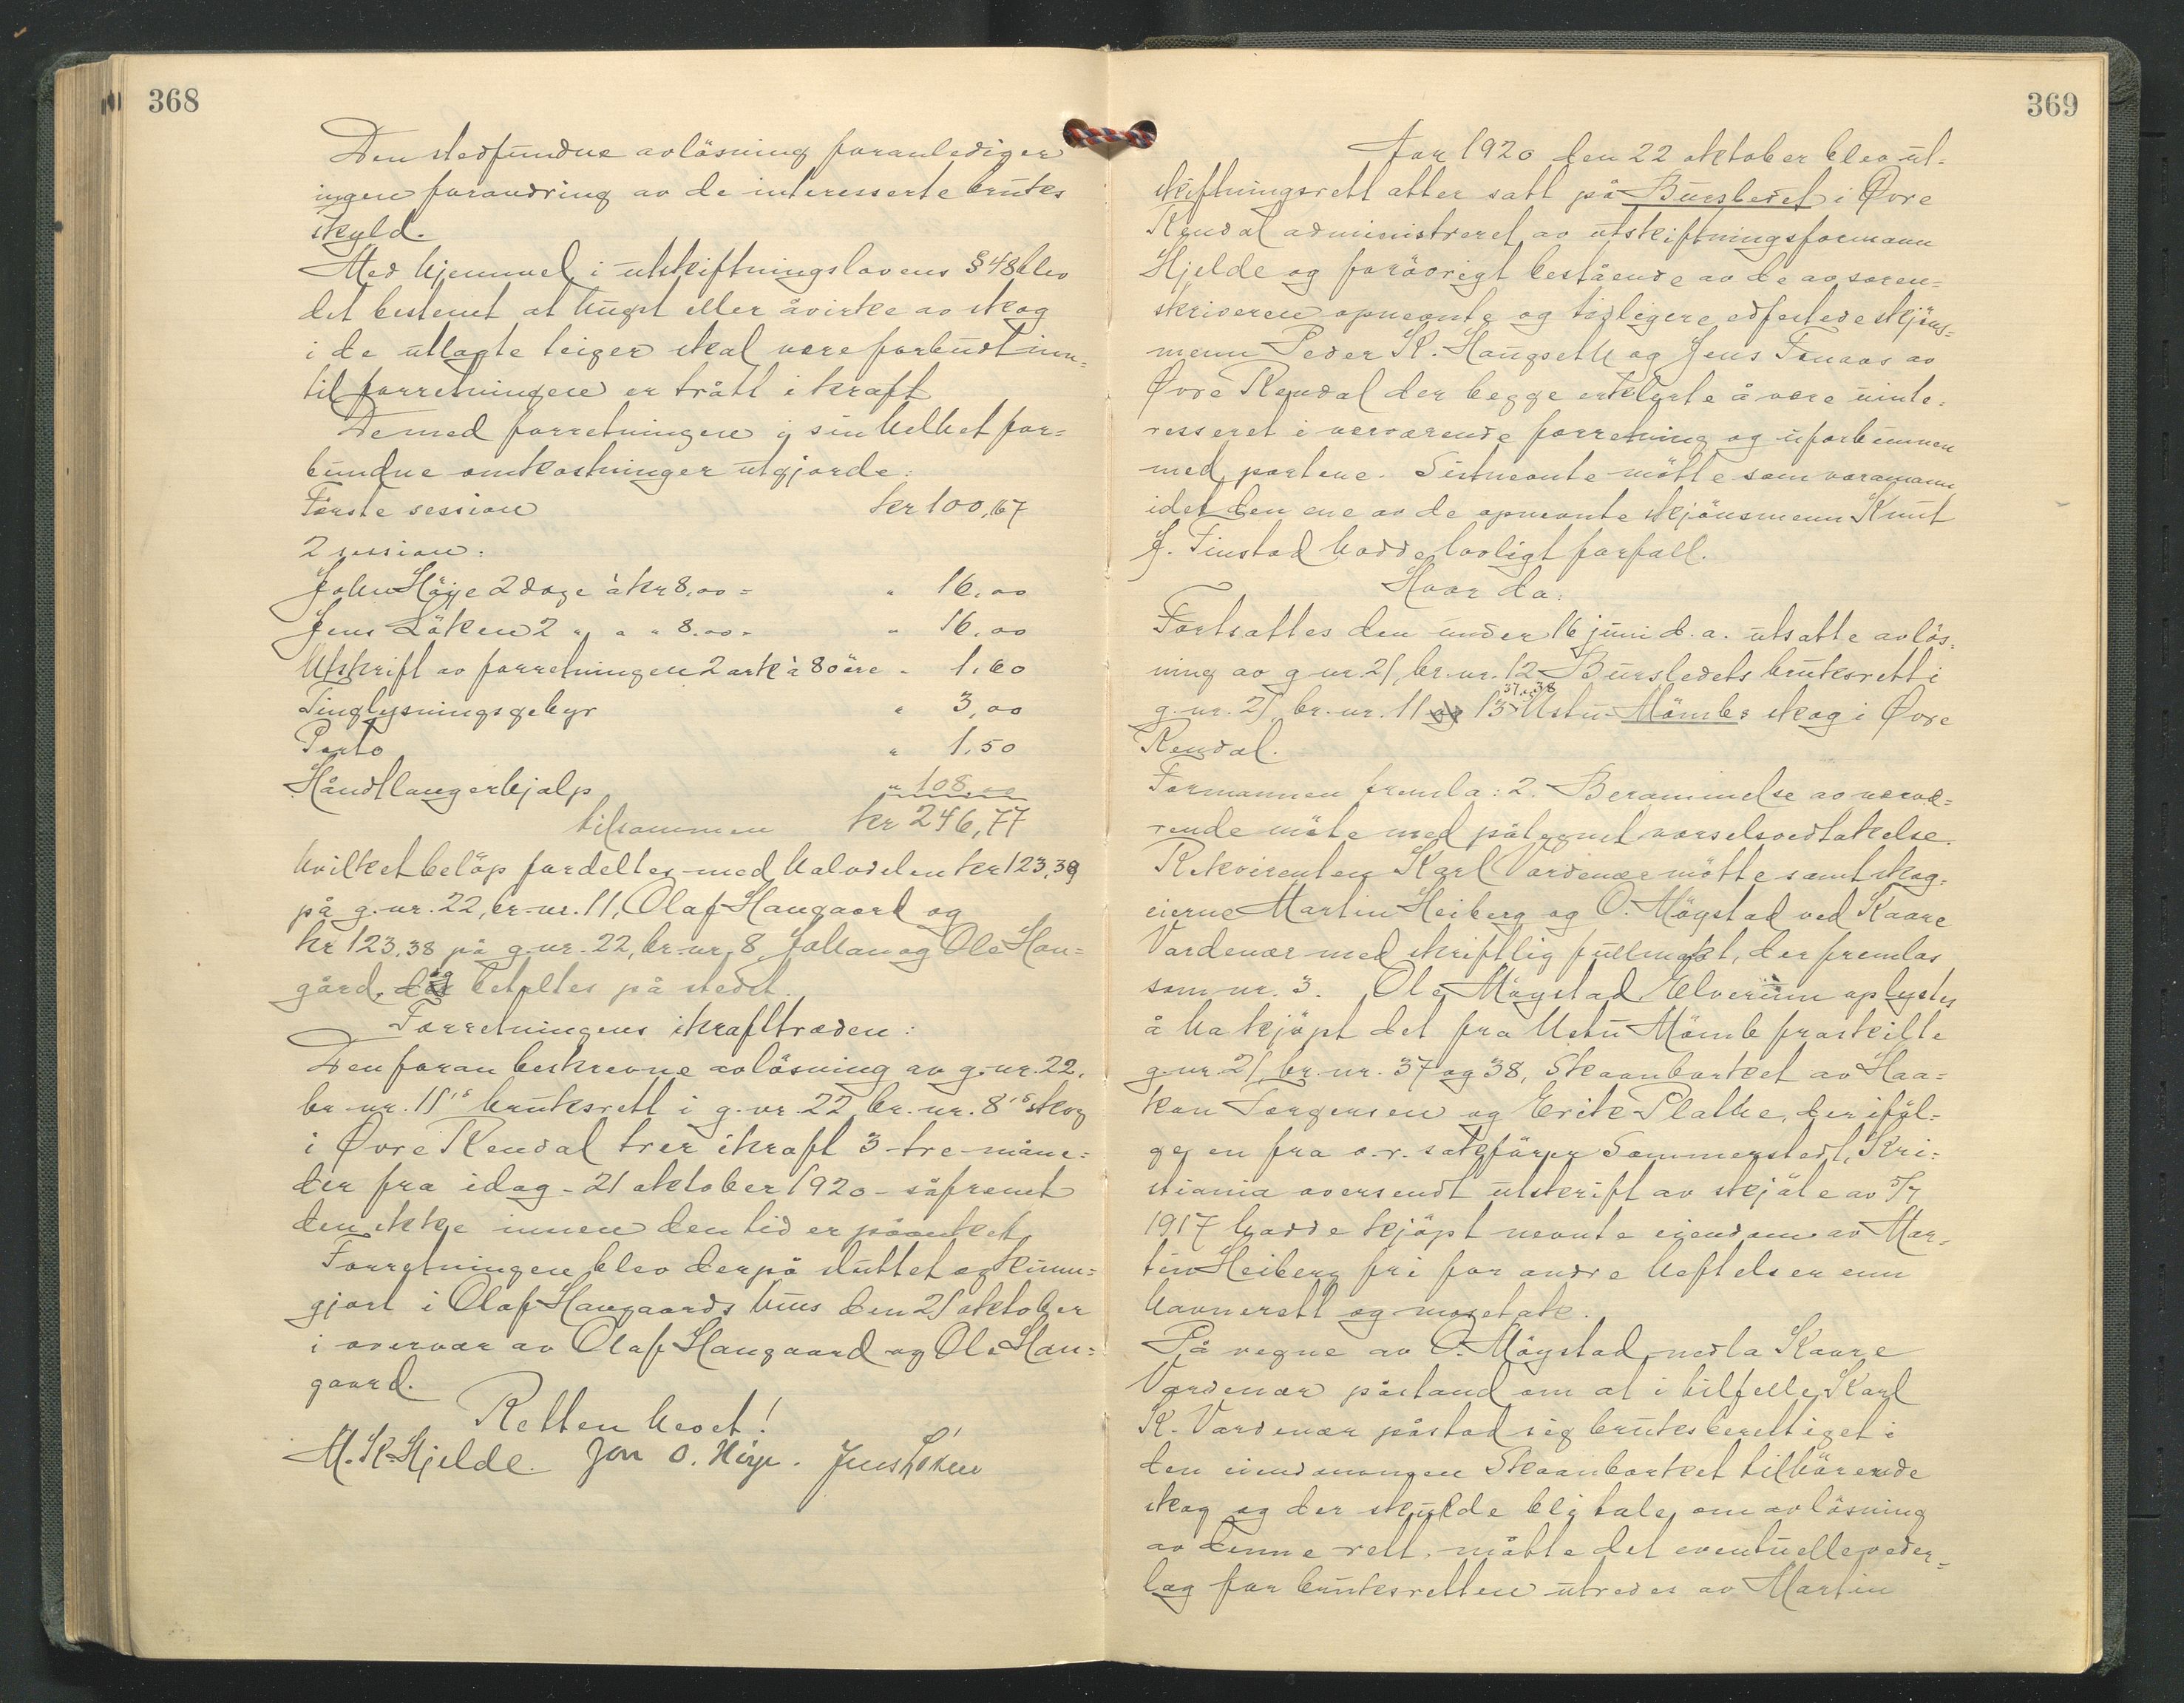 368
Den stedfundne avlösning foranlediger
ingen forandring av de interesserte bruks
skyld.
Med hjemmel i utskiftningslovens § 48 blev
det bestemt at hugst eller åvirke av skog
i de utlagte teiger skal være forbudt inn=
til forretningen er trått i kraft
De med forretningen i sin helhet for=
bundne omkostninger utgjorde:
Förste session kr 100,67
2 session:
John Höye 2 dage à kr 8,00 = " 16,00
Jens Löken 2 " " " 8.00 - " 16,00
Utskrift av forretningen 2 ark à 80 öre " 1,60
Tinglysningsgebyr " 3,00
Porto " 1,50
Håndtlangerhjælp " 108,00
tilsammen kr 246,77
hvilket belöp fordeltes med halvdelen kr 123,39
på g.-nr. 22, br-nr. 11, Olaf Haugaard og
kr 123,38 på g.-nr. 22, br.-nr. 8 Johan og Ole Hau=
gård, og betaltes på stedet.
Forretningens ikrafttræden:
Den foran beskrevne avlösning av g.-nr. 22,
br-nr. 11's bruksrett i g.-nr. 22 br.-nr. 8's skog
i Øvre Rendal trer i kraft 3 - tre - måne=
der fra idag - 21 oktober 1920 - såfremt
den ikke innen den tid er påanket
Forretningen blev derpå sluttet og kunn=
gjort i Olaf Haugaards hus den 21 oktober
i overvær av Olaf Haugaard og Ole Hau=
gaard.
Retten hevet!
M. K. Hjelde. Jon O. Höye. Jens Löken
369
Aar 1920 den 22 oktober blev ut=
skiftningsrett atter satt på Bursledet i Øvre
Rendal administreret av utskiftningsformann
Hjelde og forövrigt bestående av de av soren=
skriveren opnevnte og tidligere edfestede skjöns=
menn Peder K. Haugseth og Jens Fonaas av
Øvre Rendal der begge erklærte å være uinte=
resseret i nærværende forretning og uforbunnen
med partene. Sistnevnte mötte som varamann
idet den ene av de opnevnte skjönsmenn Knut
J. Finstad hadde lovligt forfall.
Hvor da:
Fortsattes den under 16 juni d. a. utsatte avlös=
ning av g.nr. 21, br.nr. 12 Bursledets bruksrett i
g.-nr. 21 br.-nr. 11 og 13 37 og 38 Ustu-Mömbs skog i Øvre
Rendal.
Formannen fremla: 2. Berammelse av nærvæ=
rende möte med påtegnet varselsvedtakelse.
Rekvirenten Karl Vardenær mötte samt skog=
eierne Martin Heiberg og O. Mögstad ved Kaare
Vardenær med skriftlig fullmakt, der fremlas
som nr. 3. Ole Mögstad, Elverum oplystes
å ha kjöpt det fra Ustu Mömb fraskilte
g.nr. 21 br.-nr. 37 og 38, Skaanbarket av Haa=
kon Torgersen og Erik Plathe, der iföl=
ge en fra o.r. sakförer Sommerstedt, Kri=
stiania oversendt utskrift av skjöte av 5/7
1917 hadde kjöpt nevnte eiendom av Mar=
tin Heiberg fri for andre heftelser enn
havnerett og mosetak.
På vegne av O. Mögstad nedla Kaare
Vardenær påstand om at i tilfelle Karl
K. Vardenær påstod sig bruksberettiget i
den eiendommen Skaanbarket tilhörende
skog og der skulde bli tale om avlösning
av denne rett, måtte det eventuelle veder=
lag for bruksretten utredes av Martin